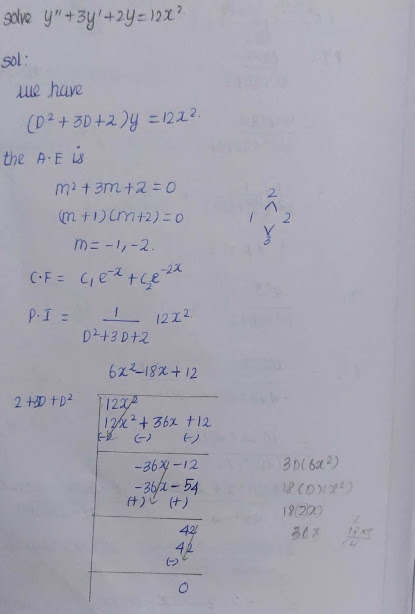 solve y''+3y'+2y=12x²
sol:
we have
(D²+3D+2)y = 12x².
the A.E is
m²+3m+2=0
(m+1)(m+2)=0
m=-1,-2.
2
1 2
3
C.F= C₁e⁻ˣ+C₂e⁻²ˣ
P.I = 1/(D²+3D+2) 12x²
6x²-18x+12
2+3D+D² 12x²
12x²+36x+12
(-) (-) (-)
-36x-12
-36x-54
(+) (+)
42
42
(-)
0
3D(6x²)
18(D)(x²)
18(2x)
36x